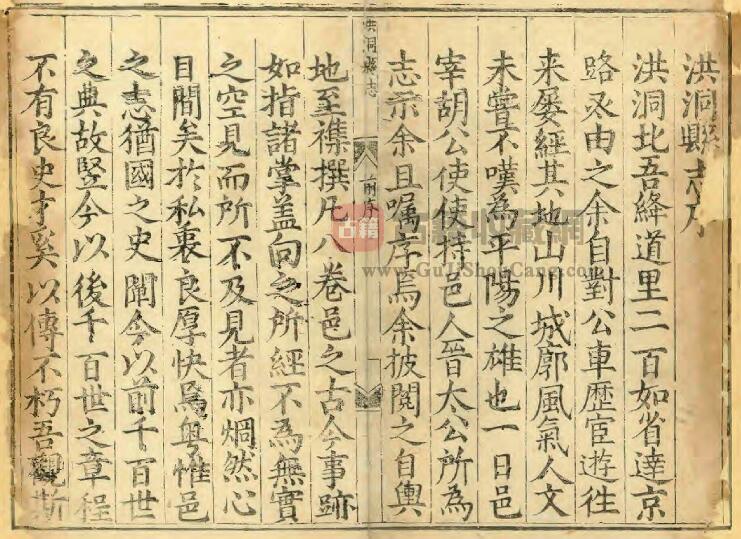 洪洞縣志序
洪洞北吾絳道里二百如省達京
路亟由之余自對公車歷宦遊徃
来屡經其地山川城郭風氣人文
未嘗不嘆為平陽之雄也一日邑
宰胡公使使持邑人晉太公所為
志示余且嘱序焉余披閲之自輿
洪洞縣志
前序
地至襍撰凡八卷邑之古今事跡
如指諸掌盖向之所經不為無實
之空見而所不及見者亦烱然心
目間矣於私衷良厚快焉粤惟邑
之志猶國之史闡今以前千百世
之典故竪今以後千百世之章程
不有良史才奚以傳不朽吾觀斯
古籍
古籍收藏網
www.GuJiShouCang.com